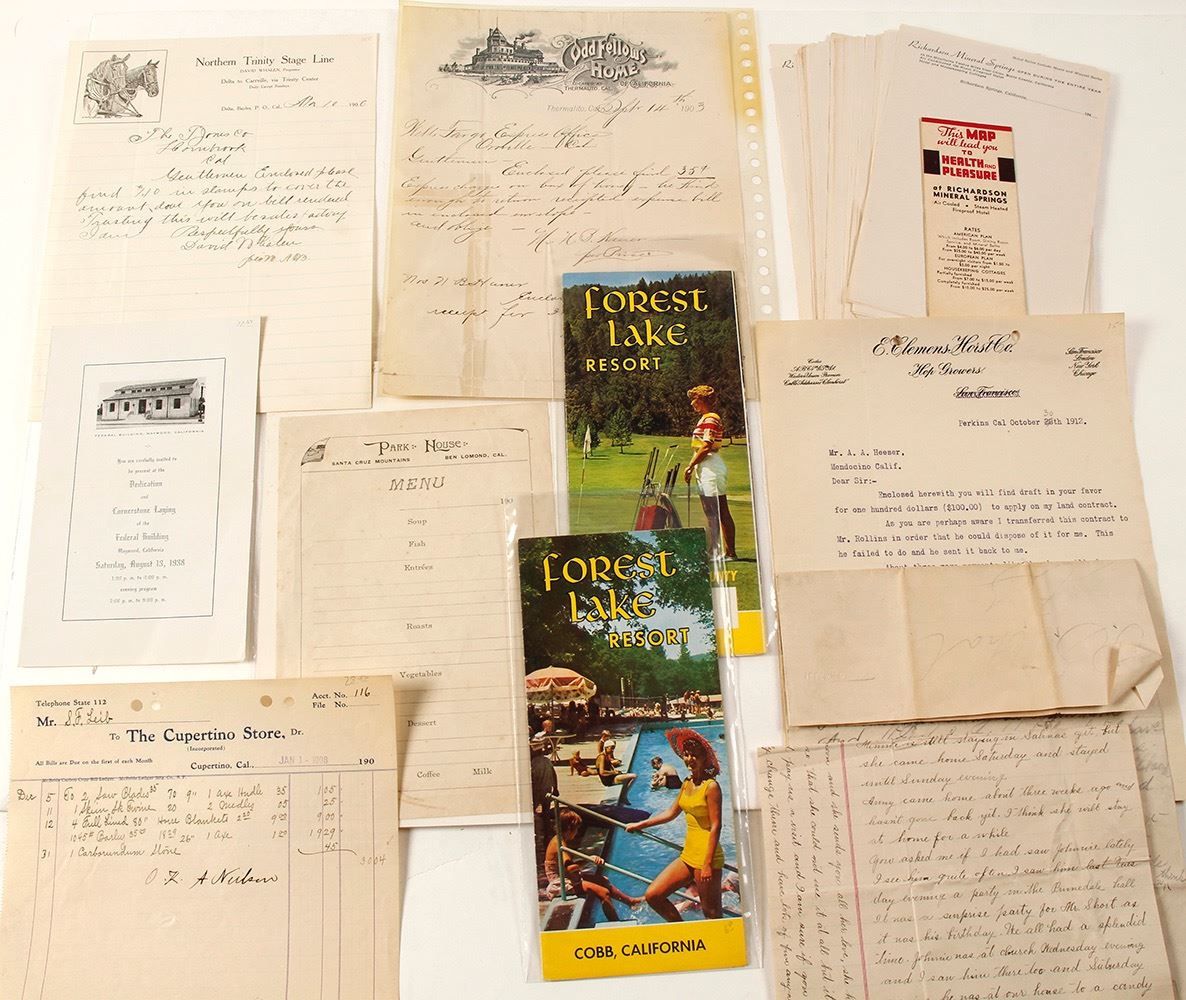 Northern Trinity Stage Line
DAVID WHALEN, Proprietor
Delta to Carrville, via Trinity Center
Daily Except Sundays
Delta, Bayles, P. O. Cal.
The Jones Co
Hornbrook
Cal
Gentlemen Enclosed please
find in stamps to cover the
amount due you on bill rendered
Trusting this will be satisfactory
I am Respectfully yours
David Whalen
Odd Fellows
HOME
OF CALIFORNIA.
THERMALITO, CAL.
Thermalito, Cal. Sept 14th 1903
Wells Fargo Express Office
Oroville Cal
Gentlemen
Enclosed please find 35¢
Express charges on box of
enough to return receipted expense bill
in enclosed envelope
and oblige
receipt for
Richardson Mineral Springs
OPEN DURING THE ENTIRE YEAR
Richardson Springs, California
This MAP
will lead you
TO
HEALTH AND
PLEASURE
at RICHARDSON
MINERAL SPRINGS
Air Cooled • Steam Heated
Fireproof Hotel
RATES
AMERICAN PLAN
Which includes Room, Dining Room
Service, and Mineral Baths
From $4.00 to $6.00 per day
From $25.00 to $40.00 per week
EUROPEAN PLAN
For overnight visitors from $1.50 to
$3.00 per night
HOUSEKEEPING COTTAGES
Partially furnished
From $7.00 to $15.00 per week
Completely furnished
From $15.00 to $25.00 per week
FEDERAL BUILDING, HAYWARD, CALIFORNIA
You are cordially invited to
be present at the
Dedication
and
Cornerstone Laying
of the
Federal Building
Hayward, California
Saturday, August 13, 1938
evening program
PARK HOUSE
SANTA CRUZ MOUNTAINS BEN LOMOND, CAL.
MENU
190
Soup
Fish
Entrées
Roasts
Vegetables
Dessert
Coffee Milk
FOREST
LAKE
RESORT
FOREST
LAKE
RESORT
COBB, CALIFORNIA
E. Clemens Horst Co.
Hop Growers
San Francisco
San Francisco
London
New York
Chicago
Perkins Cal October 30th 1912.
Mr. A. A. Heeser,
Mendocino Calif.
Dear Sir:-
Enclosed herewith you will find draft in your favor
for one hundred dollars ($100.00) to apply on my land contract.
As you are perhaps aware I transferred this contract to
Mr. Rollins in order that he could dispose of it for me. This
he failed to do and he sent it back to me.
Telephone State 112
Acct. No. 116
File No.
Mr. S. F. Leib
To The Cupertino Store, Dr.
(Incorporated)
All Bills are Due on the first of each Month
Cupertino, Cal., JAN 1 - 1908 190
Dec 5 To 2 Saw Blades 35 70 9" 1 Axe Hndle 35 1 05
11 1 Skein Sk Twine 20 2 Needles 05 25
12 4 Full Lined 80" Horse Blankets 2 25 9 00 9 00
1045# Barley 1 Axe 19 29
31 1 Carborundum Stone 45
30 04
O. K. A Neilson
Minnie is still staying in Salinas yet but
she came home Saturday and stayed
until Sunday evening.
Amy came home about three weeks ago and
hasn't gone back yet. I think she will stay
at home for a while
You asked me if I had saw Johnnie lately
I see him quite often I saw him last Tues
day evening a party in the Prunedale hall
It was a surprise party for Mr Short as
it was his birthday. We all had a splendid
time. Johnnie was at church Wednesday evening
and I saw him there too and Saturday
he was at our house to a candy